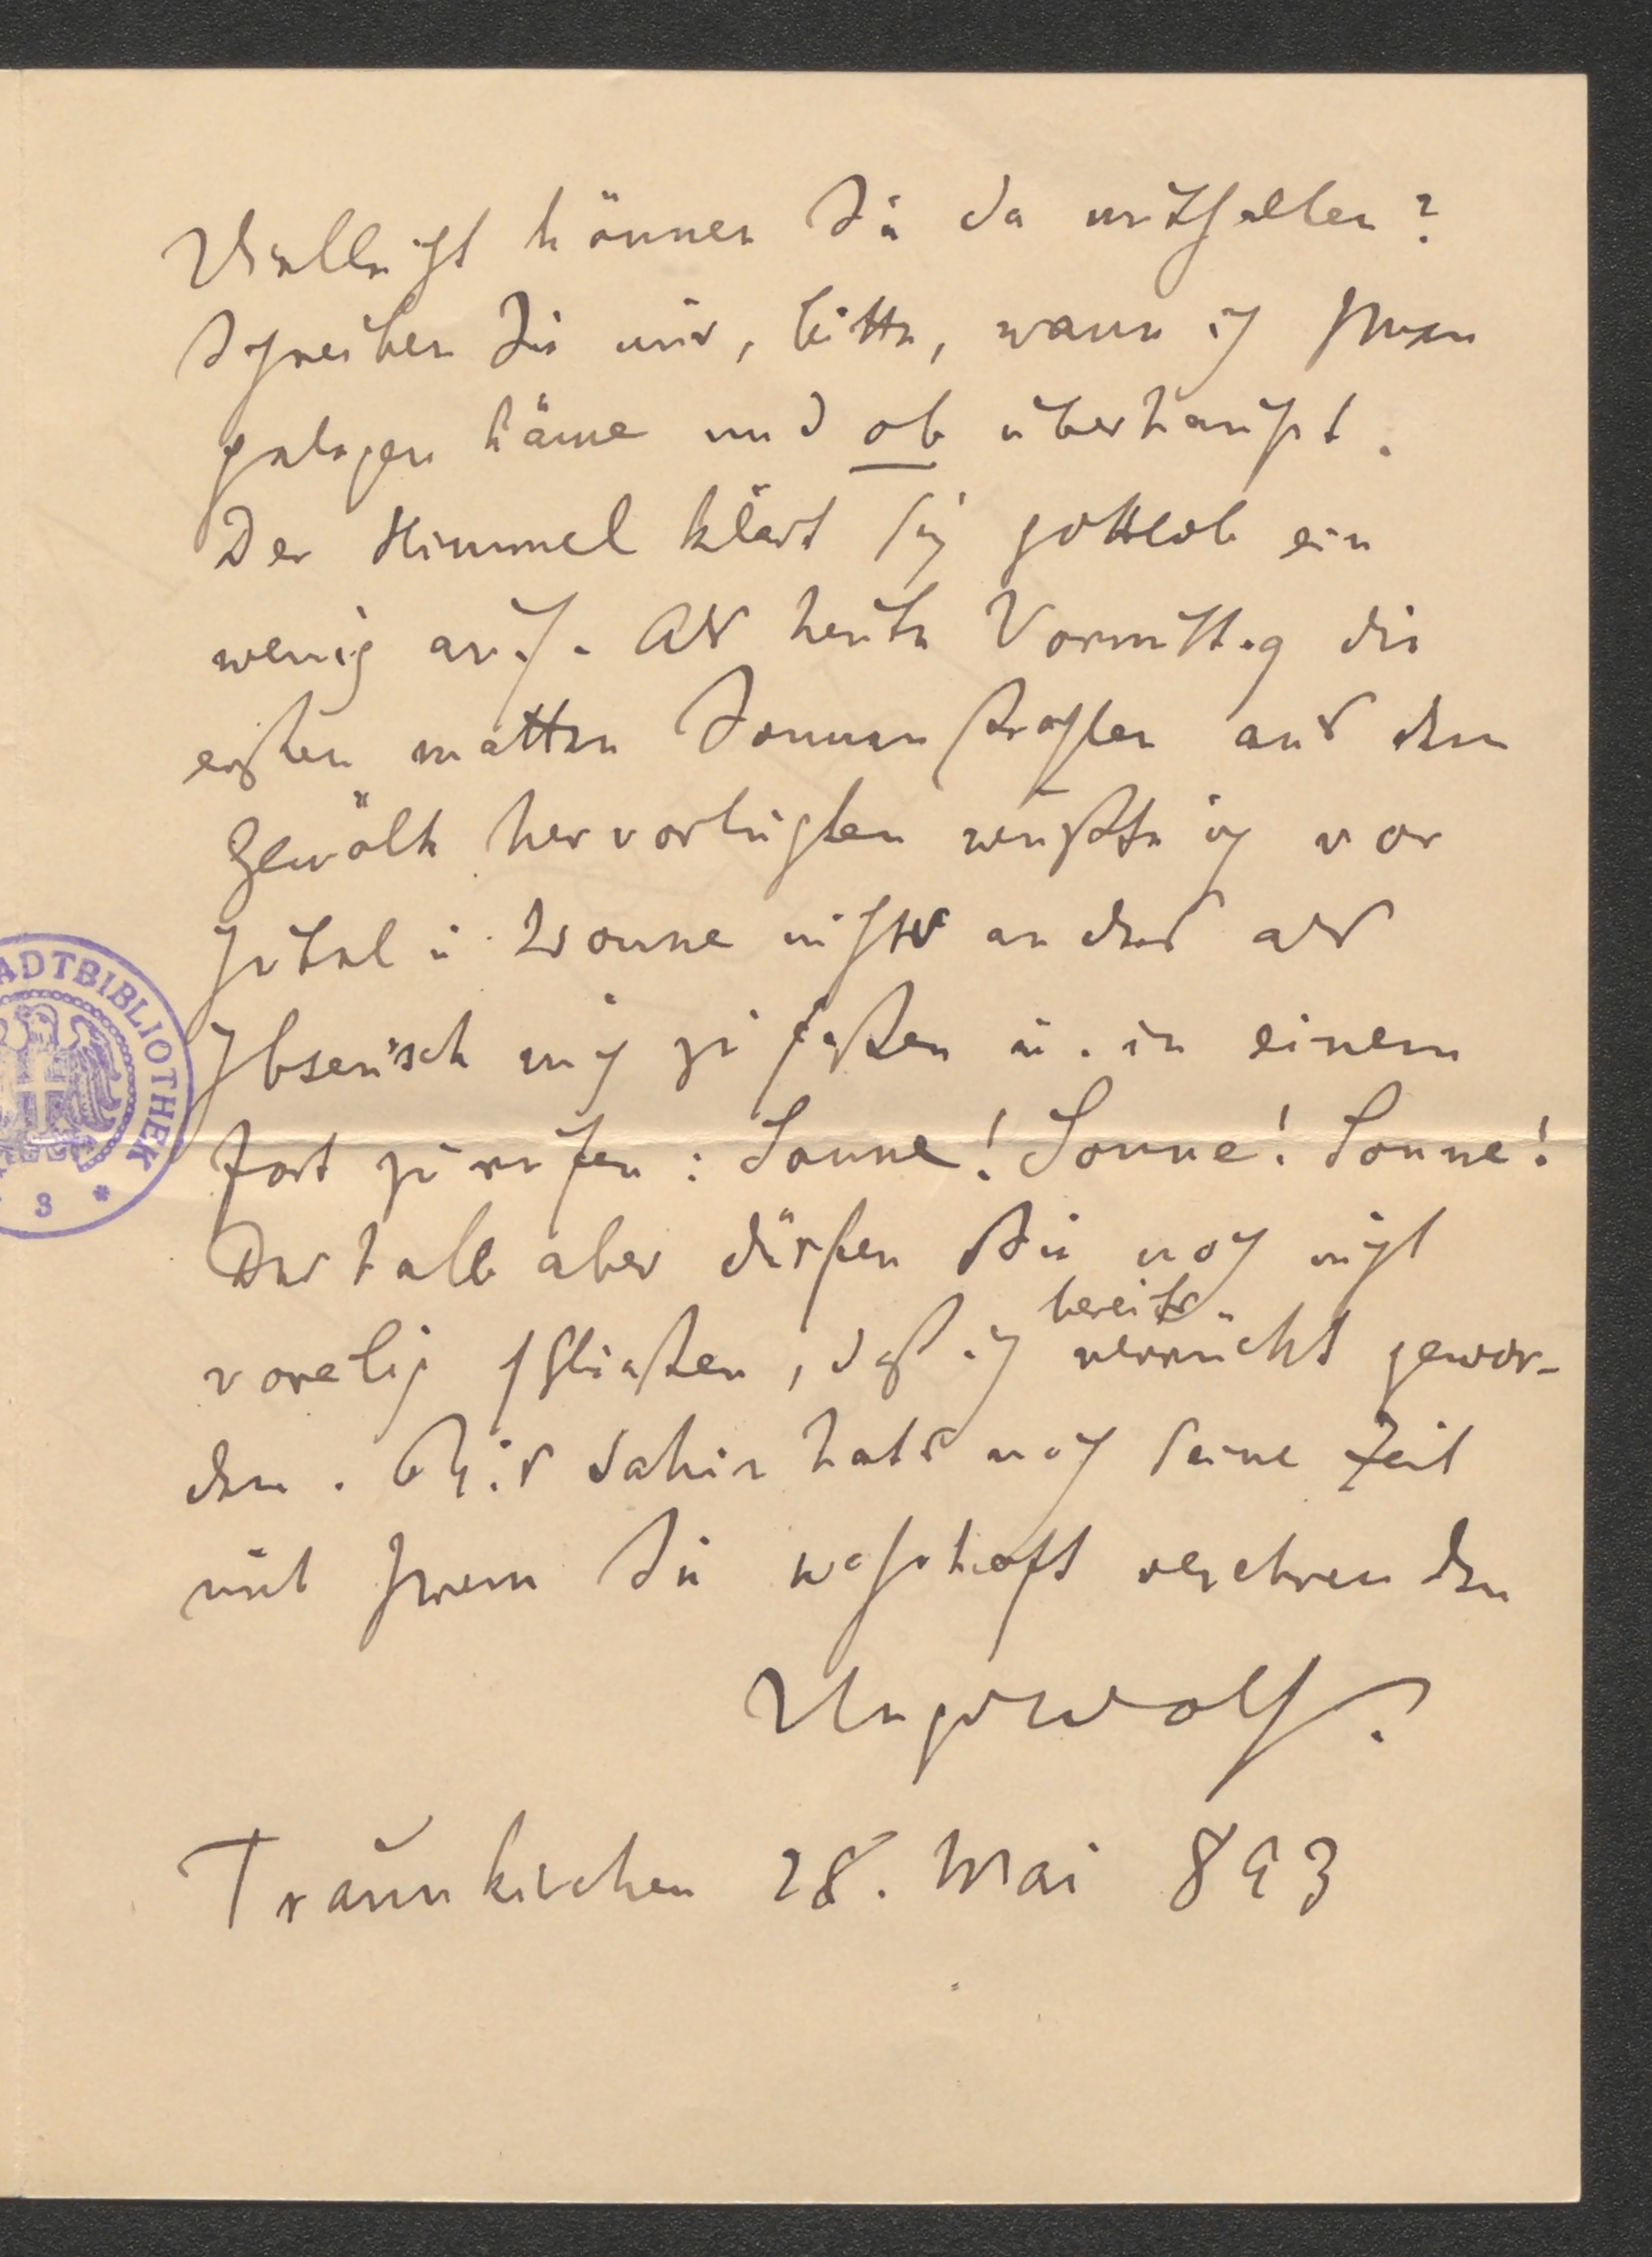 Vielleicht können Sie da mithelfen?
Schreiben Sie mir, bitte, wann ich Ihnen
gelegen käme und ob überhaupt.
Der Himmel klärt sich gottlob ein
wenig auf. Als heute Vormittag die
ersten matten Sonnenstrahlen aus dem
Gewölk hervorlugten wußte ich vor
Jubel u. Wonne nichts anders als
Ibsenisch mich zu fassen u. in einem
fort zu rufen: Sonne! Sonne! Sonne!
Deshalb aber dürfen Sie noch nicht
bereits
voreilig schließen, daß ich verrückt gewor-
den. Bis dahin hats noch seine Zeit
mit Ihrem Sie wahrhaft verehrenden
Hugo Wolf.
Traunkirchen 28. Mai 893
STADTBIBLIOTHEK
3 *